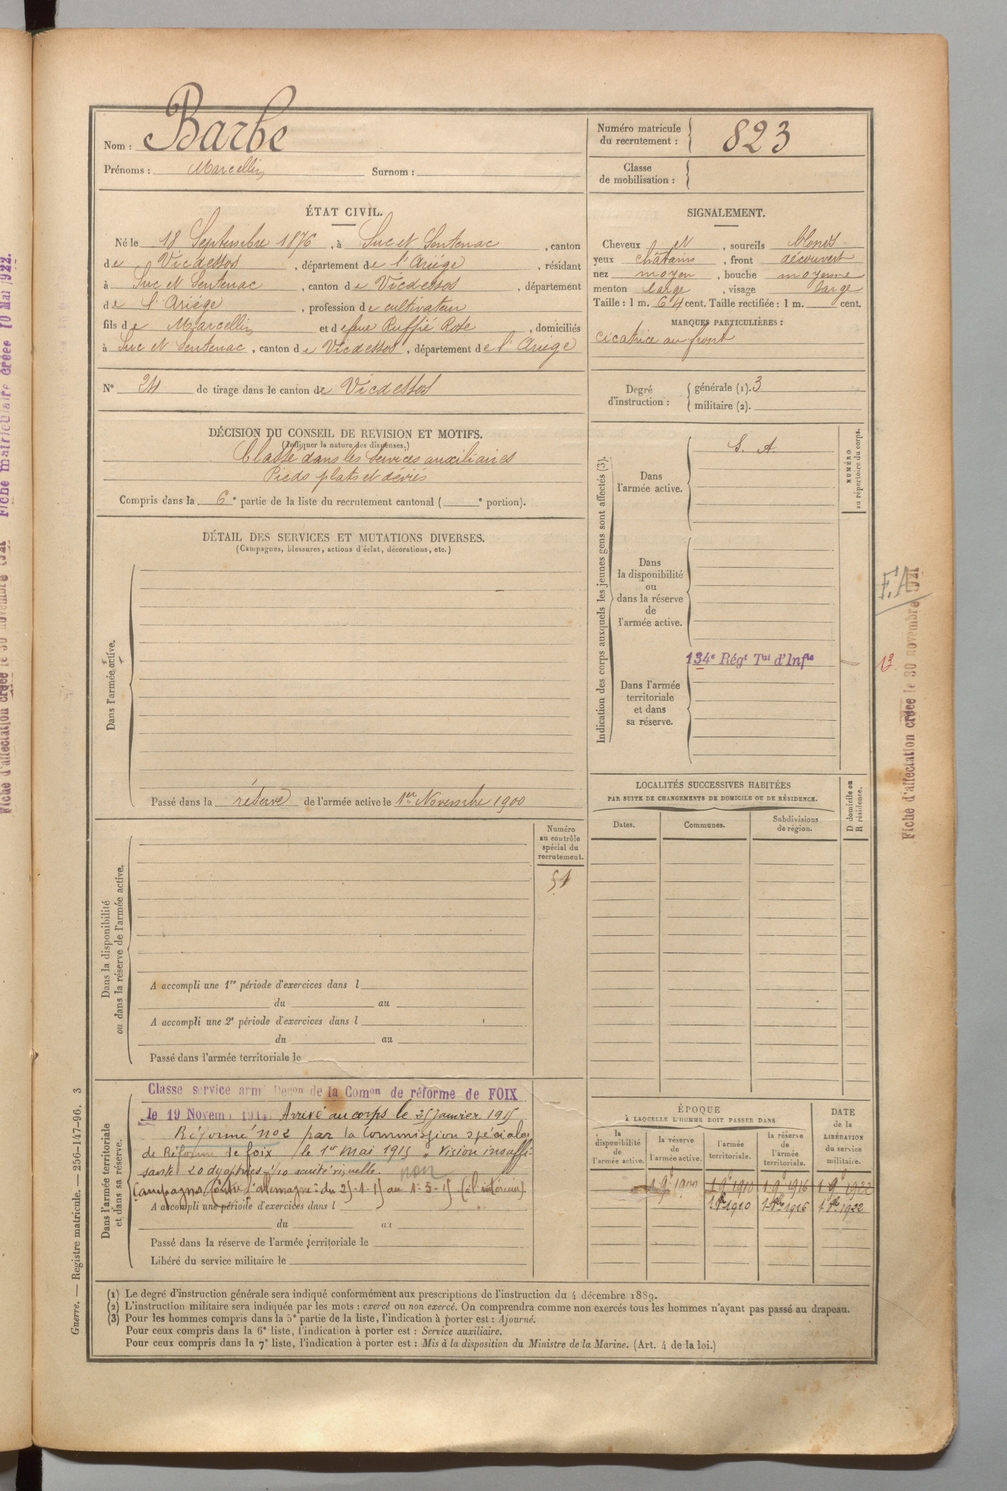 Nom : Barbe
Prénoms : Marcellin Surnom :
Numéro matricule du recrutement : 823
Classe de mobilisation :
ÉTAT CIVIL.
Né le 18 Septembre 1876, à Suc et Sentenac, canton
de Vicdessos, département de l'Ariége, résidant
à Suc et Sentenac, canton de Vicdessos, département
de l'Ariége, profession de cultivateur
fils de Marcellin et de feue Ruffié Rose, domiciliés
à Suc et Sentenac, canton de Vicdessos, département de l'Ariége
N° 24 de tirage dans le canton de Vicdessos
SIGNALEMENT.
Cheveux et, sourcils blonds
yeux châtains, front découvert
nez moyen, bouche moyenne
menton large, visage large
Taille : 1 m. 64 cent. Taille rectifiée : 1 m. cent.
MARQUES PARTICULIÈRES :
cicatrice au front
Degré d'instruction : générale (1). 3
militaire (2).
DÉCISION DU CONSEIL DE REVISION ET MOTIFS.
(Indiquer la nature des dispenses.)
Classé dans les services auxiliaires
Pieds plats et déviés
Compris dans la 6e partie de la liste du recrutement cantonal ( e portion).
DÉTAIL DES SERVICES ET MUTATIONS DIVERSES.
(Campagnes, blessures, actions d'éclat, décorations, etc.)
Dans l'armée active.
Passé dans la réserve de l'armée active le 1er Novembre 1900
Indication des corps auxquels les jeunes gens sont affectés (3).
NUMÉRO au répertoire du corps.
Dans l'armée active.
S. A.
Dans la disponibilité ou dans la réserve de l'armée active.
134e Régt Tal d'Infie
Dans l'armée territoriale et dans sa réserve.
13
F.A
Fiche d'affectation créée le 30 novembre 1921
LOCALITÉS SUCCESSIVES HABITÉES
PAR SUITE DE CHANGEMENTS DE DOMICILE OU DE RÉSIDENCE.
D domicile ou R résidence.
Dates. Communes. Subdivisions de région.
Numéro au contrôle spécial du recrutement.
51
Dans la disponibilité ou dans la réserve de l'armée active.
A accompli une 1re période d'exercices dans l
du au
A accompli une 2e période d'exercices dans l
du au
Passé dans l'armée territoriale le
Dans l'armée territoriale et dans sa réserve.
Classe service arm de la Comon de réforme de FOIX
le 19 Novem 191 Arrivé au corps le 25 Janvier 1915
Réformé n°2 par la Commission spéciale
de Réforme de Foix le 1er Mai 1915 : vision insuffi-
sante 20 dyoptries 1/10 acuité visuelle non
Campagne contre l'Allemagne : du 25-1-15 au 1-5-15 (à l'intérieur)
A accompli une période d'exercices dans l
du au
Passé dans la réserve de l'armée territoriale le
Libéré du service militaire le
ÉPOQUE
À LAQUELLE L'HOMME DOIT PASSER DANS
la disponibilité de l'armée active. la réserve de l'armée active. l'armée territoriale. la réserve de l'armée territoriale.
DATE de la LIBÉRATION du service militaire.
1 9e 1900 1 9e 1910 1 9e 1916 1 9e 1922
1910 1916 1922
(1) Le degré d'instruction générale sera indiqué conformément aux prescriptions de l'instruction du 4 décembre 1889.
(2) L'instruction militaire sera indiquée par les mots : exercé ou non exercé. On comprendra comme non exercés tous les hommes n'ayant pas passé au drapeau.
(3) Pour les hommes compris dans la 5e partie de la liste, l'indication à porter est : Ajourné.
Pour ceux compris dans la 6e liste, l'indication à porter est : Service auxiliaire.
Pour ceux compris dans la 7e liste, l'indication à porter est : Mis à la disposition du Ministre de la Marine. (Art. 4 de la loi.)
Guerre. — Registre matricule. — 256-147-96. 3
Fiche matriculaire créée 10 Mai 1922.
Fiche d'affectation créée le 30 novembre